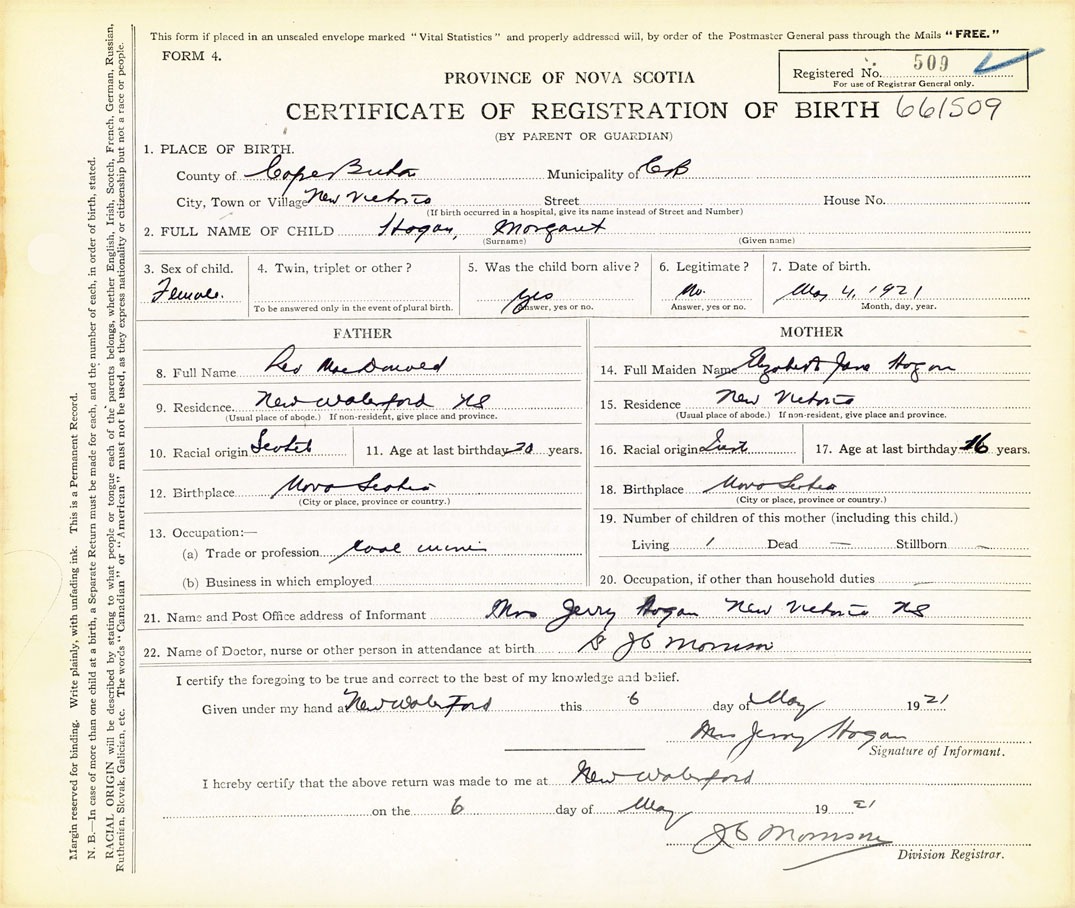 This form if placed in an unsealed envelope marked "Vital Statistics" and properly addressed will, by order of the Postmaster General pass through the Mails "FREE."
FORM 4.
Registered No. 509
For use of Registrar General only.
PROVINCE OF NOVA SCOTIA
CERTIFICATE OF REGISTRATION OF BIRTH 661509
(BY PARENT OR GUARDIAN)
1. PLACE OF BIRTH.
County of Cape Breton Municipality of CB
City, Town or Village New Victoria Street House No.
(If birth occurred in a hospital, give its name instead of Street and Number)
2. FULL NAME OF CHILD Hogan, Margaret
(Surname) (Given name)
3. Sex of child. 4. Twin, triplet or other? 5. Was the child born alive? 6. Legitimate? 7. Date of birth.
Female. yes No. May 4, 1921
To be answered only in the event of plural birth. Answer, yes or no. Answer, yes or no. Month, day, year.
FATHER
8. Full Name Leo MacDonald
9. Residence. New Waterford NS
(Usual place of abode.) If non-resident, give place and province.
10. Racial origin Scotch 11. Age at last birthday 20 years.
12. Birthplace Nova Scotia
(City or place, province or country.)
13. Occupation:—
(a) Trade or profession coal miner
(b) Business in which employed
MOTHER
14. Full Maiden Name Elizabeth Jane Hogan
15. Residence New Victoria
(Usual place of abode.) If non-resident, give place and province.
16. Racial origin 17. Age at last birthday 16 years.
18. Birthplace Nova Scotia
(City or place, province or country.)
19. Number of children of this mother (including this child.)
Living 1 Dead — Stillborn —
20. Occupation, if other than household duties
21. Name and Post Office address of Informant Mrs Jerry Hogan New Victoria NS
22. Name of Doctor, nurse or other person in attendance at birth JC Morrison
I certify the foregoing to be true and correct to the best of my knowledge and belief.
Given under my hand at New Waterford this 6 day of May 1921
Mrs Jerry Hogan
Signature of Informant.
I hereby certify that the above return was made to me at New Waterford
on the 6 day of May 1921
JC Morrison
Division Registrar.
Margin reserved for binding. Write plainly, with unfading ink. This is a Permanent Record.
N. B.—In case of more than one child at a birth, a Separate Return must be made for each, and the number of each, in order of birth, stated.
RACIAL ORIGIN will be described by stating to what people or tongue each of the parents belongs, whether English, Irish, Scotch, French, German, Russian,
Ruthenian, Slovak, Galician, etc. The words "Canadian" or "American" must not be used, as they express nationality or citizenship but not a race or people.